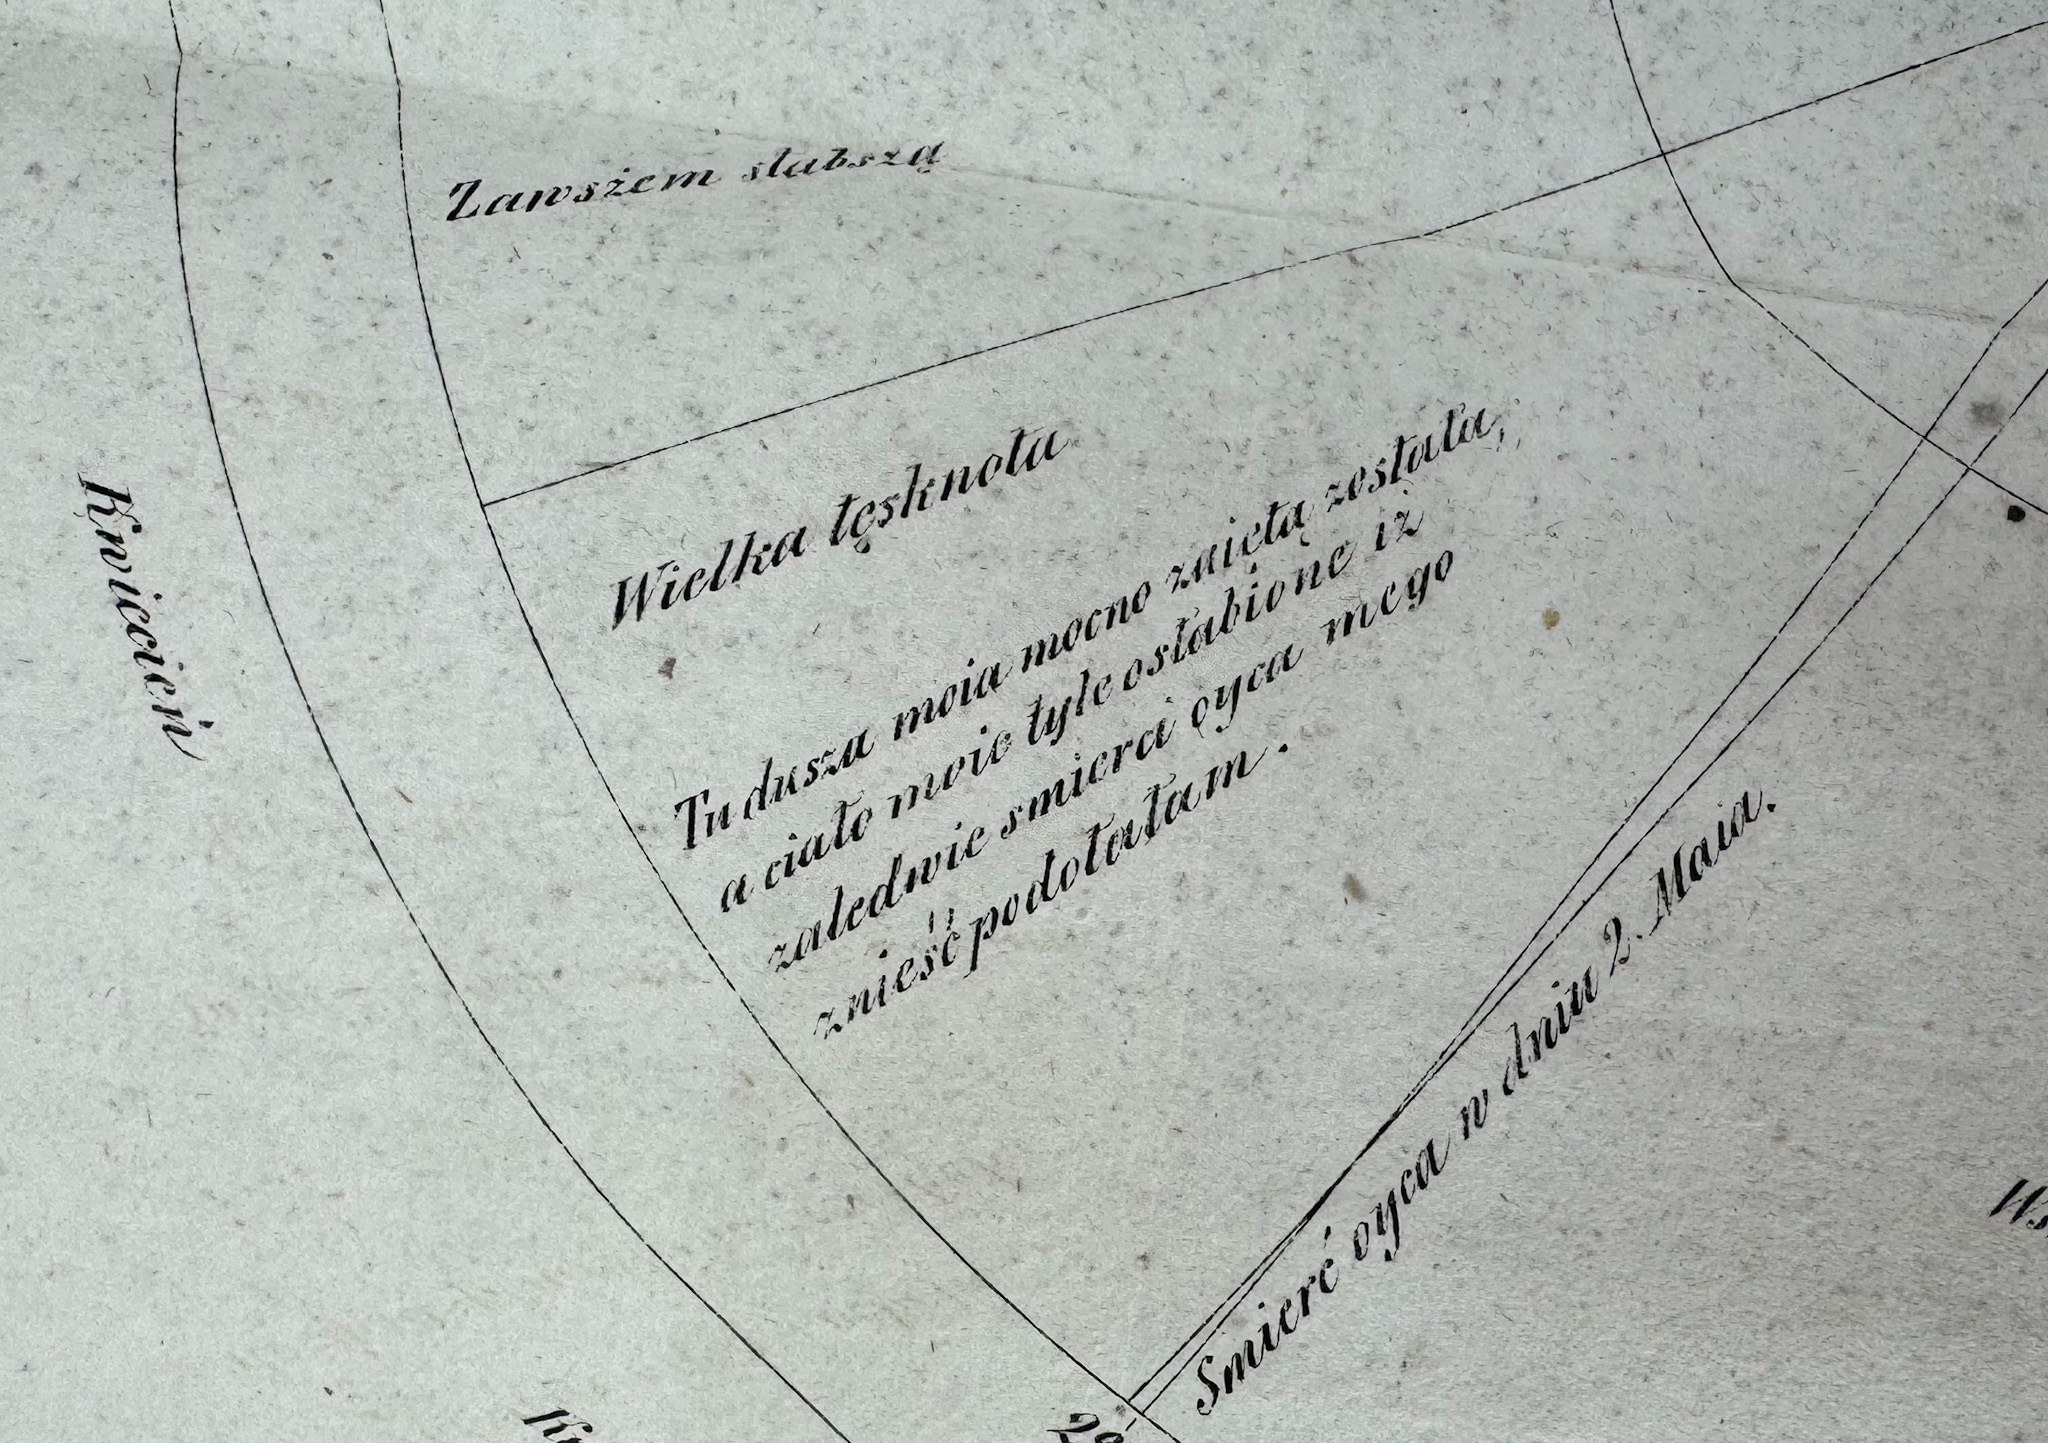 Zawsżem słabszą
Kwiecień
Wielka tęsknota
Tu dusza moia mocno zaięta została,
a ciało moie tyle osłabione iż
zaledwie smierci oyca mego
znieść podołałam.
Smierć oyca w dniu 2. Maia.